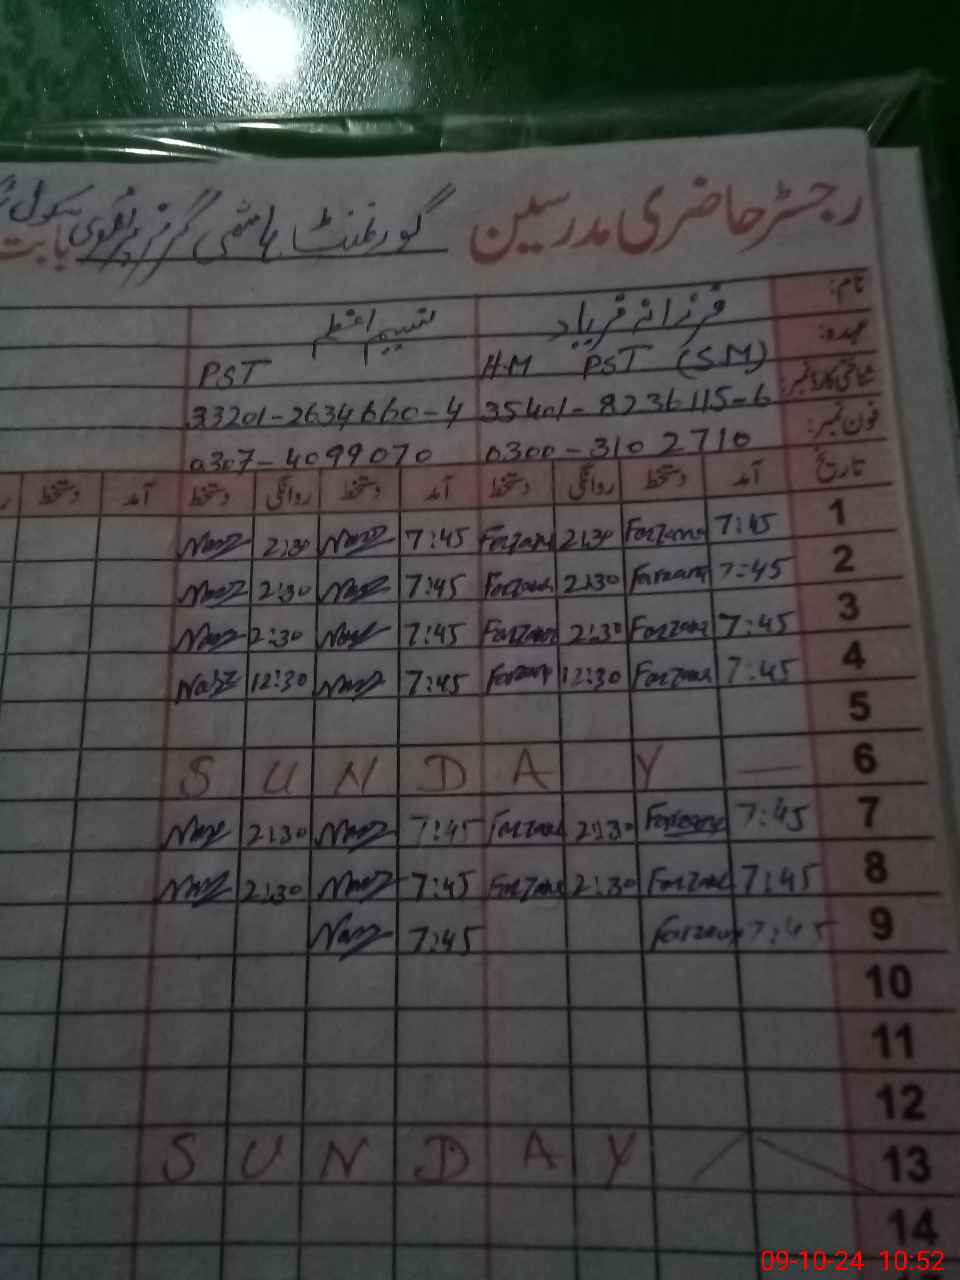 رجسٹر حاضری مدرسین گورنمنٹ ہاشمی گرلز پرائمری سکول بابت
نام: فرزانہ فریاد نسیم اعظم
عہدہ: H.M PST (SM) PST
شناختی کارڈ نمبر: 35401-8236115-6 33201-2634660-4
فون نمبر: 0300-3102710 0307-4099070
تاریخ آمد دستخط روانگی دستخط آمد دستخط روانگی دستخط آمد دستخط
1 7:45 Farzana 2:30 Farzana 7:45 2:30
2 7:45 Farzana 2:30 Farzana 7:45 2:30
3 7:45 Farzana 2:30 Farzana 7:45 2:30
4 7:45 Farzana 12:30 Farzana 7:45 12:30
5
6 SUNDAY
7 7:45 Farzana 2:30 Farzana 7:45 2:30
8 7:45 Farzana 2:30 Farzana 7:45 2:30
9 7:45 Farzana 7:45
10
11
12
13 SUNDAY
14
09-10-24 10:52